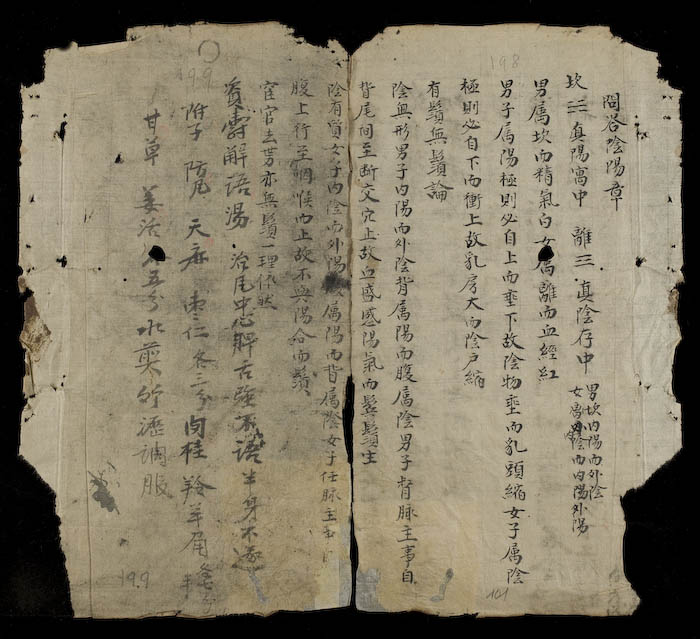 198
問答陰陽章
坎☵真陽寓中 離☲真陰存中 男坎內陽而外陰
女離內陰而外陽
男属坎而精氣白女属離而血經紅
男子属陽極則必自上而垂下故陰物垂而乳頭縮女子属陰
極則必自下而衝上故乳房大而陰户縮
有鬚無鬚論
陰無形男子內陽而外陰背属陽而腹属陰男子督脉主事自
背尾间至断交穴止故血盛感陽氣而鬚生
陰有質女子內陰而外陽属陽而背属陰女子任脉主
腹上行至咽喉而止故不與陽合而鬚
宦官去势亦無鬚一理依然
資壽解語湯 治風中心脾舌強不語半身不遂
附子 防風 天麻 枣仁各二分 肉桂 羚羊角
甘草 羌活五分水煎竹瀝調服
101
199
199